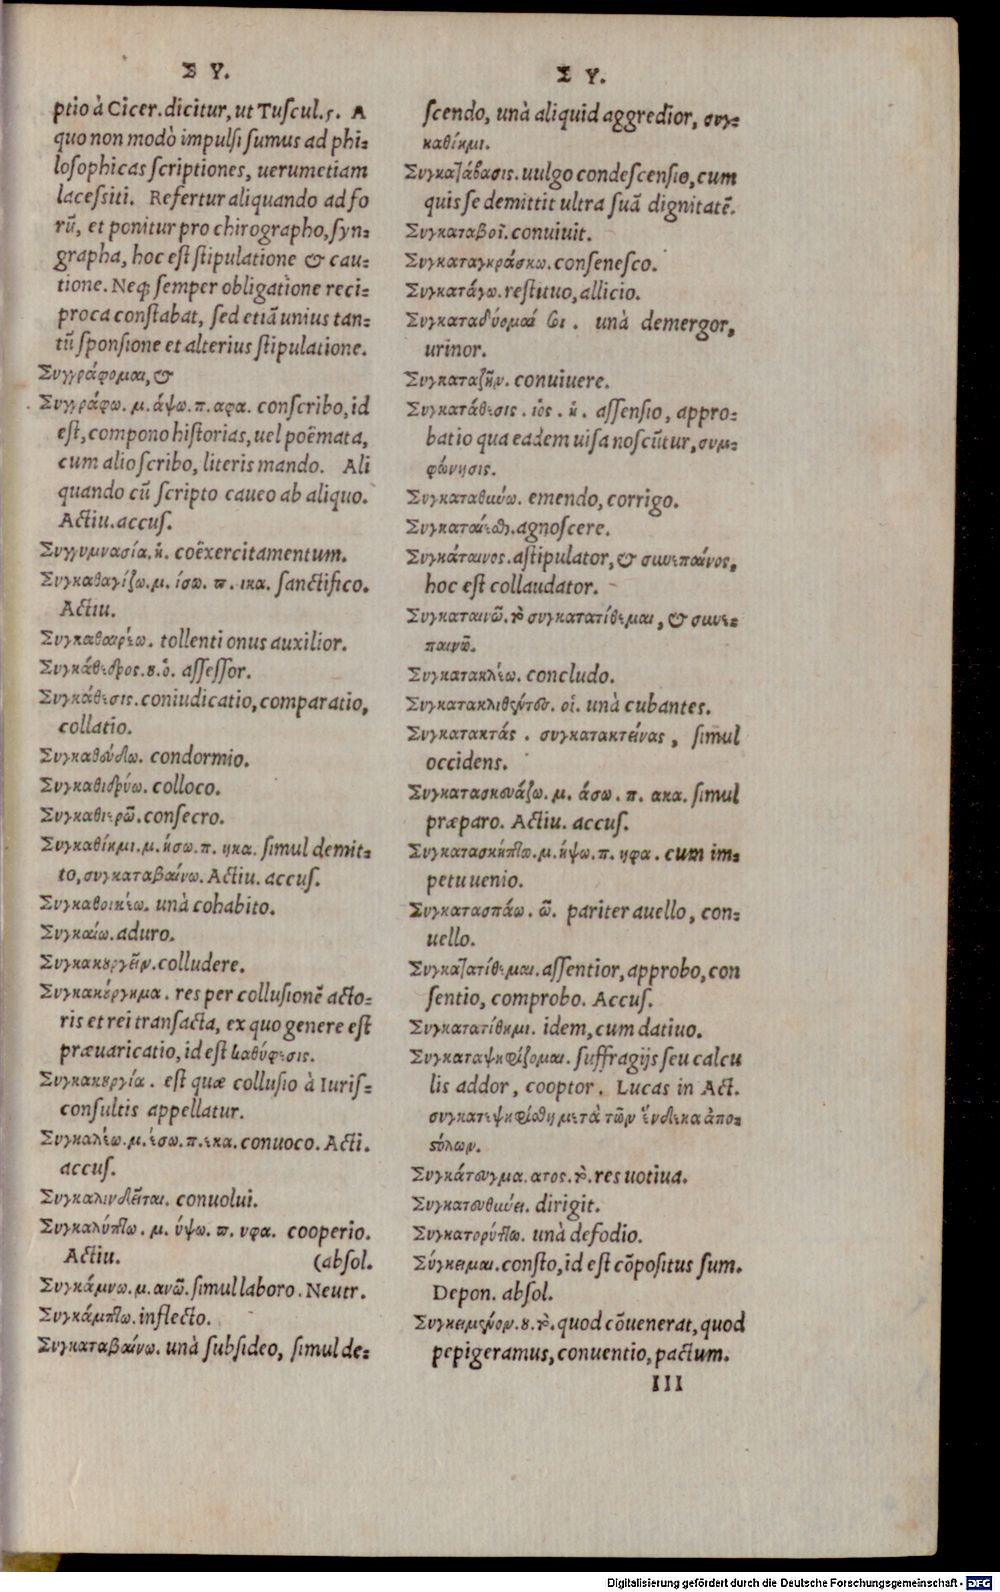 Σ Υ.
ptio à Cicer. dicitur, ut Tuscul. 5. A
quo non modò impulsi sumus ad phi-
losophicas scriptiones, uerumetiam
lacessiti. Refertur aliquando ad fo
rũ, et ponitur pro chirographo, syn-
grapha, hoc est stipulatione & cau-
tione. Neq; semper obligatione reci-
proca constabat, sed etiã unius tan-
tũ sponsione et alterius stipulatione.
Συγγράφομαι, &
Συγγράφω. μ. άψω. π. αφα. conscribo, id
est, compono historias, uel poëmata,
cum alio scribo, literis mando. Ali
quando cũ scripto caueo ab aliquo.
Actiu. accus.
Συγγυμνασία, ἡ. coëxercitamentum.
Συγκαθαγίζω. μ. ίσω. π. ικα. sanctifico.
Actiu.
Συγκαθαιρέω. tollenti onus auxilior.
Συγκάθεδρος. ου. ὁ. assessor.
Συγκάθεσις. coniudicatio, comparatio,
collatio.
Συγκαθεύδω. condormio.
Συγκαθιδρύω. colloco.
Συγκαθιερῶ. consecro.
Συγκαθίημι. μ. ήσω. π. ηκα. simul demit-
to, συγκαταβαίνω. Actiu. accus.
Συγκαθοικέω. unà cohabito.
Συγκαίω. aduro.
Συγκακουργεῖν. colludere.
Συγκακούργημα. res per collusionẽ acto-
ris et rei transacta, ex quo genere est
præuaricatio, id est καθύφεσις.
Συγκακουργία. est quæ collusio à Iuris-
consultis appellatur.
Συγκαλέω. μ. έσω. π. εκα. conuoco. Acti.
accus.
Συγκαλινδεῖται. conuolui.
Συγκαλύπτω. μ. ύψω. π. υφα. cooperio.
Actiu. (absol.
Συγκάμνω. μ. ανῶ. simul laboro. Neutr.
Συγκάμπτω. inflecto.
Συγκαταβαίνω. unà subsideo, simul de-
Σ Υ.
scendo, unà aliquid aggredior, συγ-
καθίημι.
Συγκατάβασις. uulgo condescensio, cum
quis se demittit ultra suã dignitatẽ.
Συγκαταβιοῖ. conuiuit.
Συγκαταγηράσκω. consenesco.
Συγκατάγω. restituo, allicio.
Συγκαταδύομαί σοι. unà demergor,
urinor.
Συγκαταζῆν. conuiuere.
Συγκατάθεσις. ιος. ἡ. assensio, appro-
batio qua eadem uisa noscũtur, συμ-
φώνησις.
Συγκαταθύω. emendo, corrigo.
agnoscere.
Συγκάταινος. astipulator, & συνεπαίνος,
hoc est collaudator.
Συγκαταινῶ. τὸ συγκατατίθεμαι, & συνε-
παινῶ.
Συγκατακλέω. concludo.
Συγκατακλιθέντες. οἱ. unà cubantes.
Συγκατακτάς. συγκατακτείνας, simul
occidens.
Συγκατασκευάζω. μ. άσω. π. ακα. simul
præparo. Actiu. accus.
Συγκατασκήπτω. μ. ήψω. π. ηφα. cum im-
petu uenio.
Συγκατασπάω. ῶ. pariter auello, con-
uello.
Συγκατατίθεμαι. assentior, approbo, con
sentio, comprobo. Accus.
Συγκατατίθημι. idem, cum datiuo.
Συγκαταψηφίζομαι. suffragijs seu calcu
lis addor, cooptor. Lucas in Act.
συγκατεψηφίσθη μετὰ τῶν ἕνδεκα ἀπο-
στόλων.
Συγκάτευγμα. ατος. τὸ. res uotiua.
Συγκατευθύνει. dirigit.
Συγκατορύττω. unà defodio.
Σύγκειμαι. consto, id est cõpositus sum.
Depon. absol.
Συγκειμένον. ου. τὸ. quod cõuenerat, quod
pepigeramus, conuentio, pactum.
III
Digitalisierung gefördert durch die Deutsche Forschungsgemeinschaft - DFG